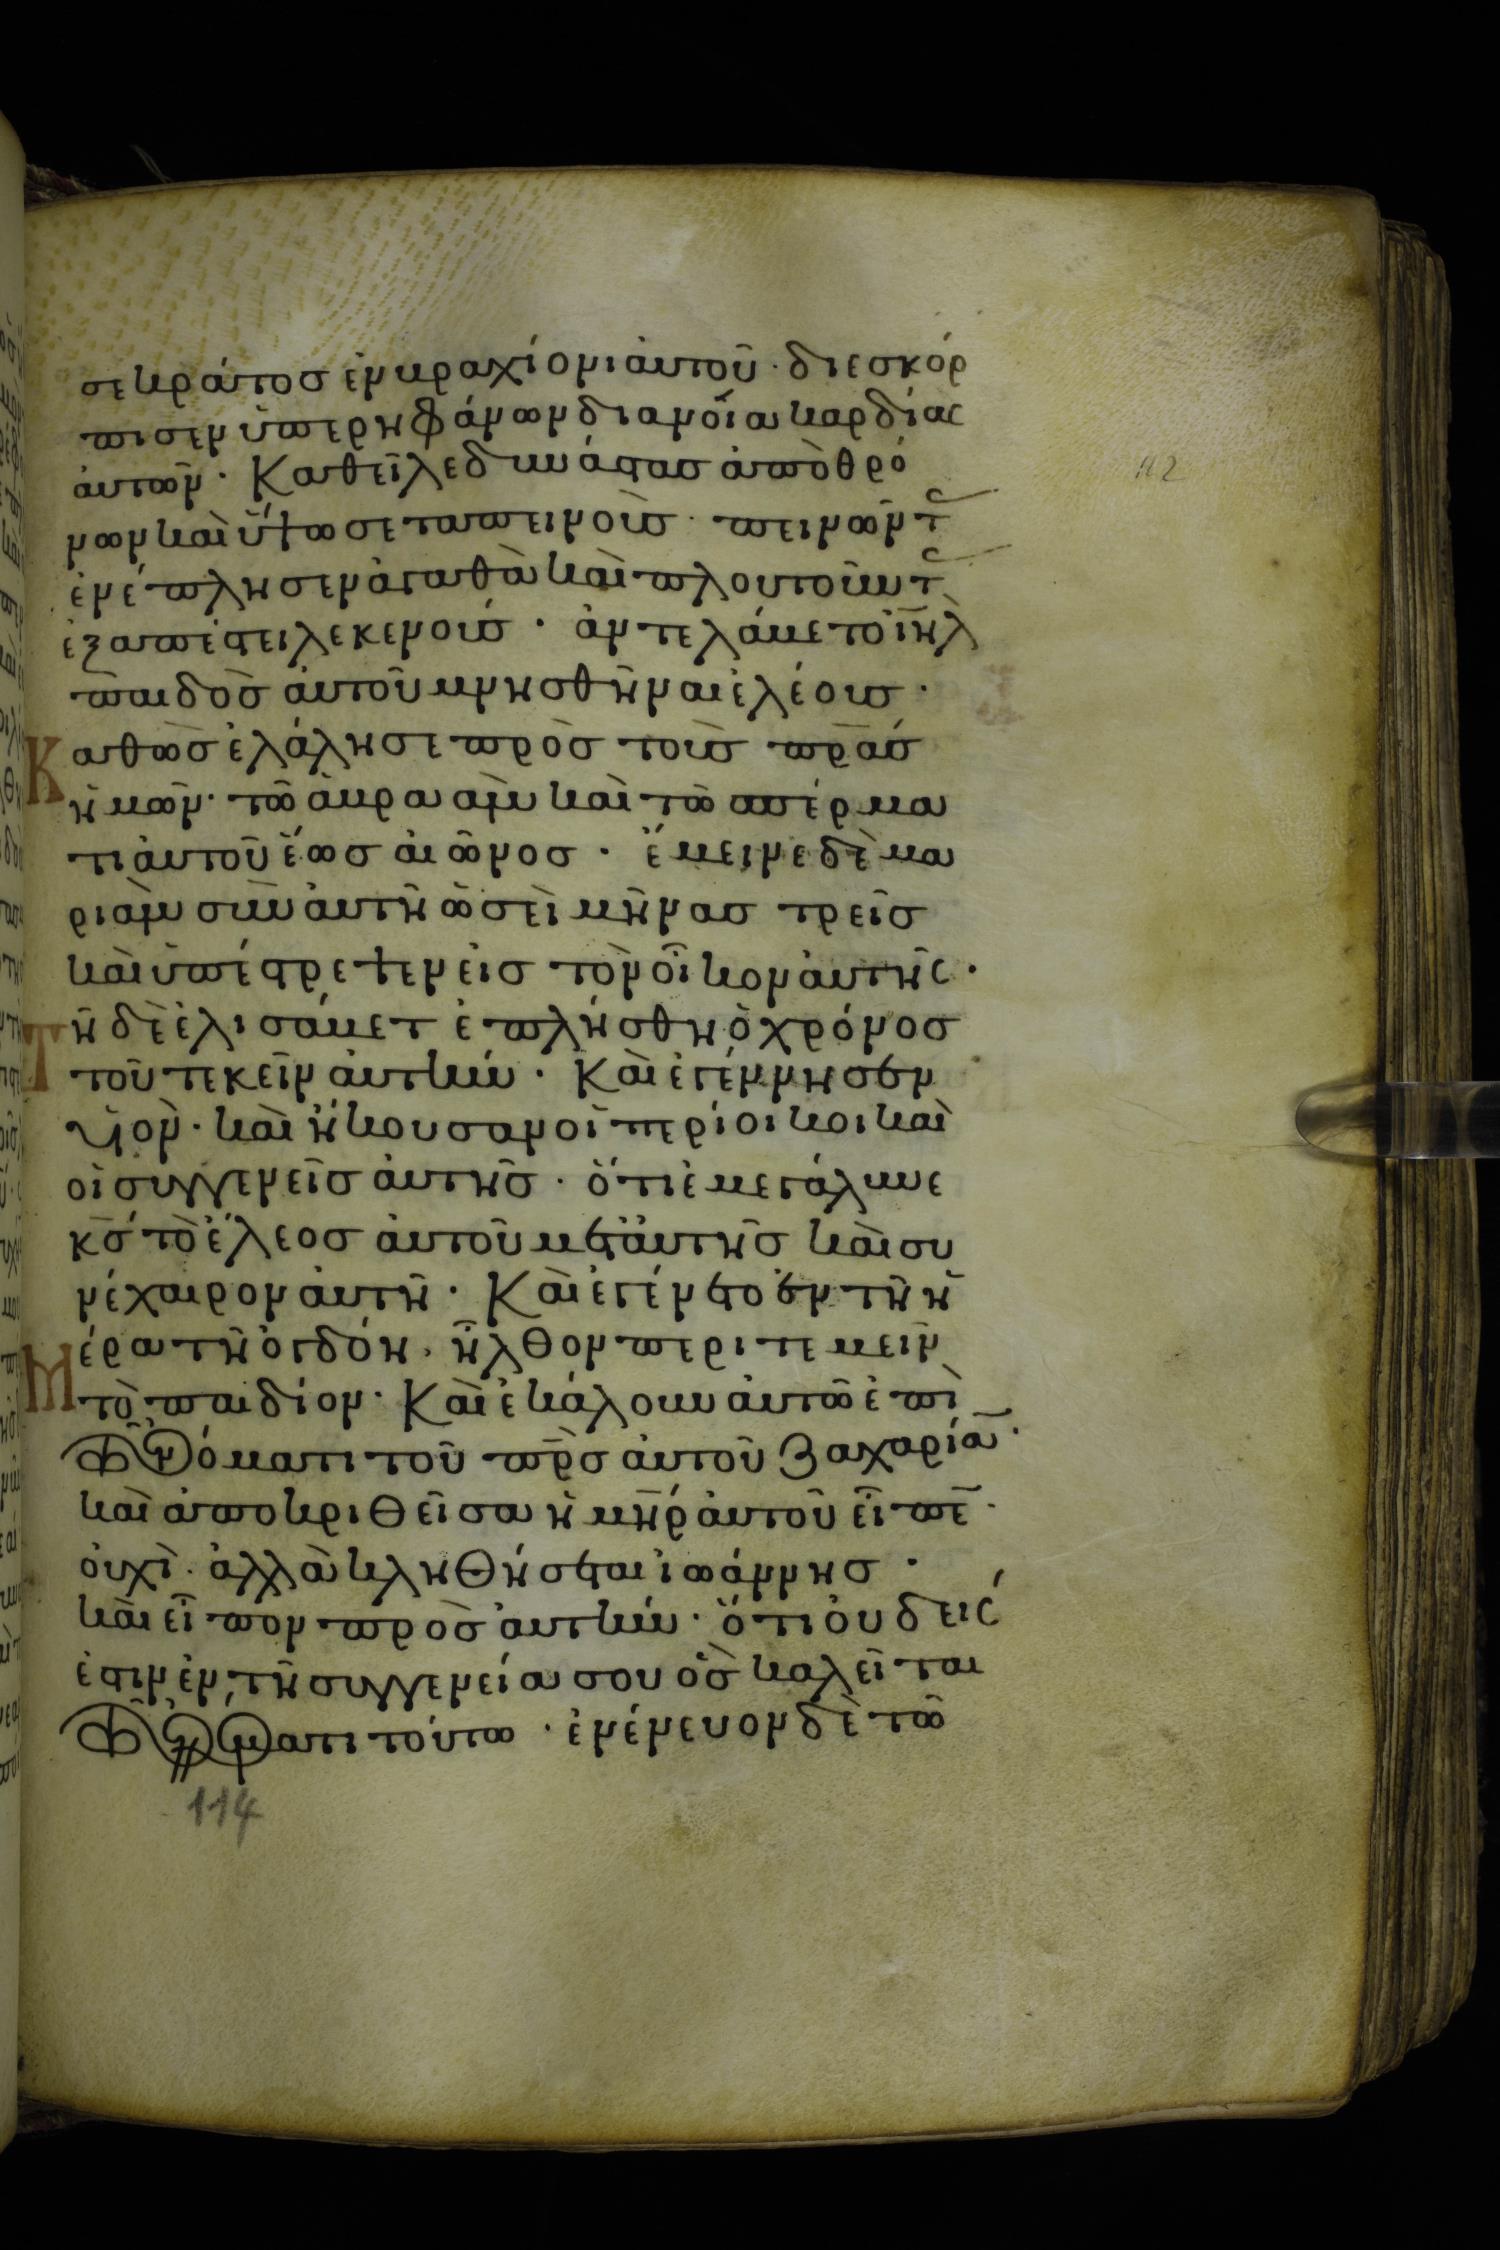 σε κράτος ἐν βραχίονι ἀυτοῦ · διεσκόρ
πισεν ὑπερηφάνων διανοία καρδίας
ἀυτῶν · Καθεῖλε δυνάστας ἀπὸ θρό
νων καὶ ὕψωσε ταπεινοὺς · πεινῶντ
ἐνέπλησεν ἀγαθὰ καὶ πλουτοῦντ
ἐξαπέστειλε κενούς · ἀντελάβετο ἰηλ
παιδὸς ἀυτοῦ μνησθῆναι ἐλέους ·
Καθὼς ἐλάλησε πρὸς τοὺς πρας
ἡμῶν · τῶ ἀβραὰμ καὶ τῶ σπέρμα
τι ἀυτοῦ ἕως ἀιῶνος · ἔμεινε δὲ μα
ριὰμ σὺν ἀυτῆ ὡσεὶ μῆνας τρεῖς
καὶ ὑπέστρεψεν ἐις τὸν οἶκον ἀυτῆς ·
Τῆ δὲ ἐλισάβετ ἐπλήσθη ὁ χρόνος
τοῦ τεκεῖν ἀυτήν · Καὶ ἐγέννησεν
ὑιὸν · καὶ ἤκουσαν οἱ περίοικοι καὶ
οἱ συγγενεῖς ἀυτῆς · ὅτι ἐμεγάλυνε
κς τὸ ἔλεος ἀυτοῦ μετ ἀυτῆς καὶ συ
νέχαιρον ἀυτῆ · Καὶ ἐγένετο ἐν τῆ ἡ
Μέρα τῆ ὀγδόη · ἦλθον περιτεμεῖν
τὸ παιδίον · Καὶ ἐκάλουν ἀυτῶ ἐπὶ
τῶ ὀνόματι τοῦ πρς ἀυτοῦ Ζαχαρίαν ·
καὶ ἀποκριθεῖσα ἡ μηρ ἀυτοῦ εἶπε ·
ὀυχὶ · ἀλλὰ κληθήσεται ἰωάννης ·
καὶ εἶπον πρὸς ἀυτήν · ὅτι ὀυδείς
ἐστιν ἐν τῆ συγγενεία σου ὃς καλεῖται
τῶ ὀνόματι τούτω · ἐνένευον δὲ τῶ
112
114